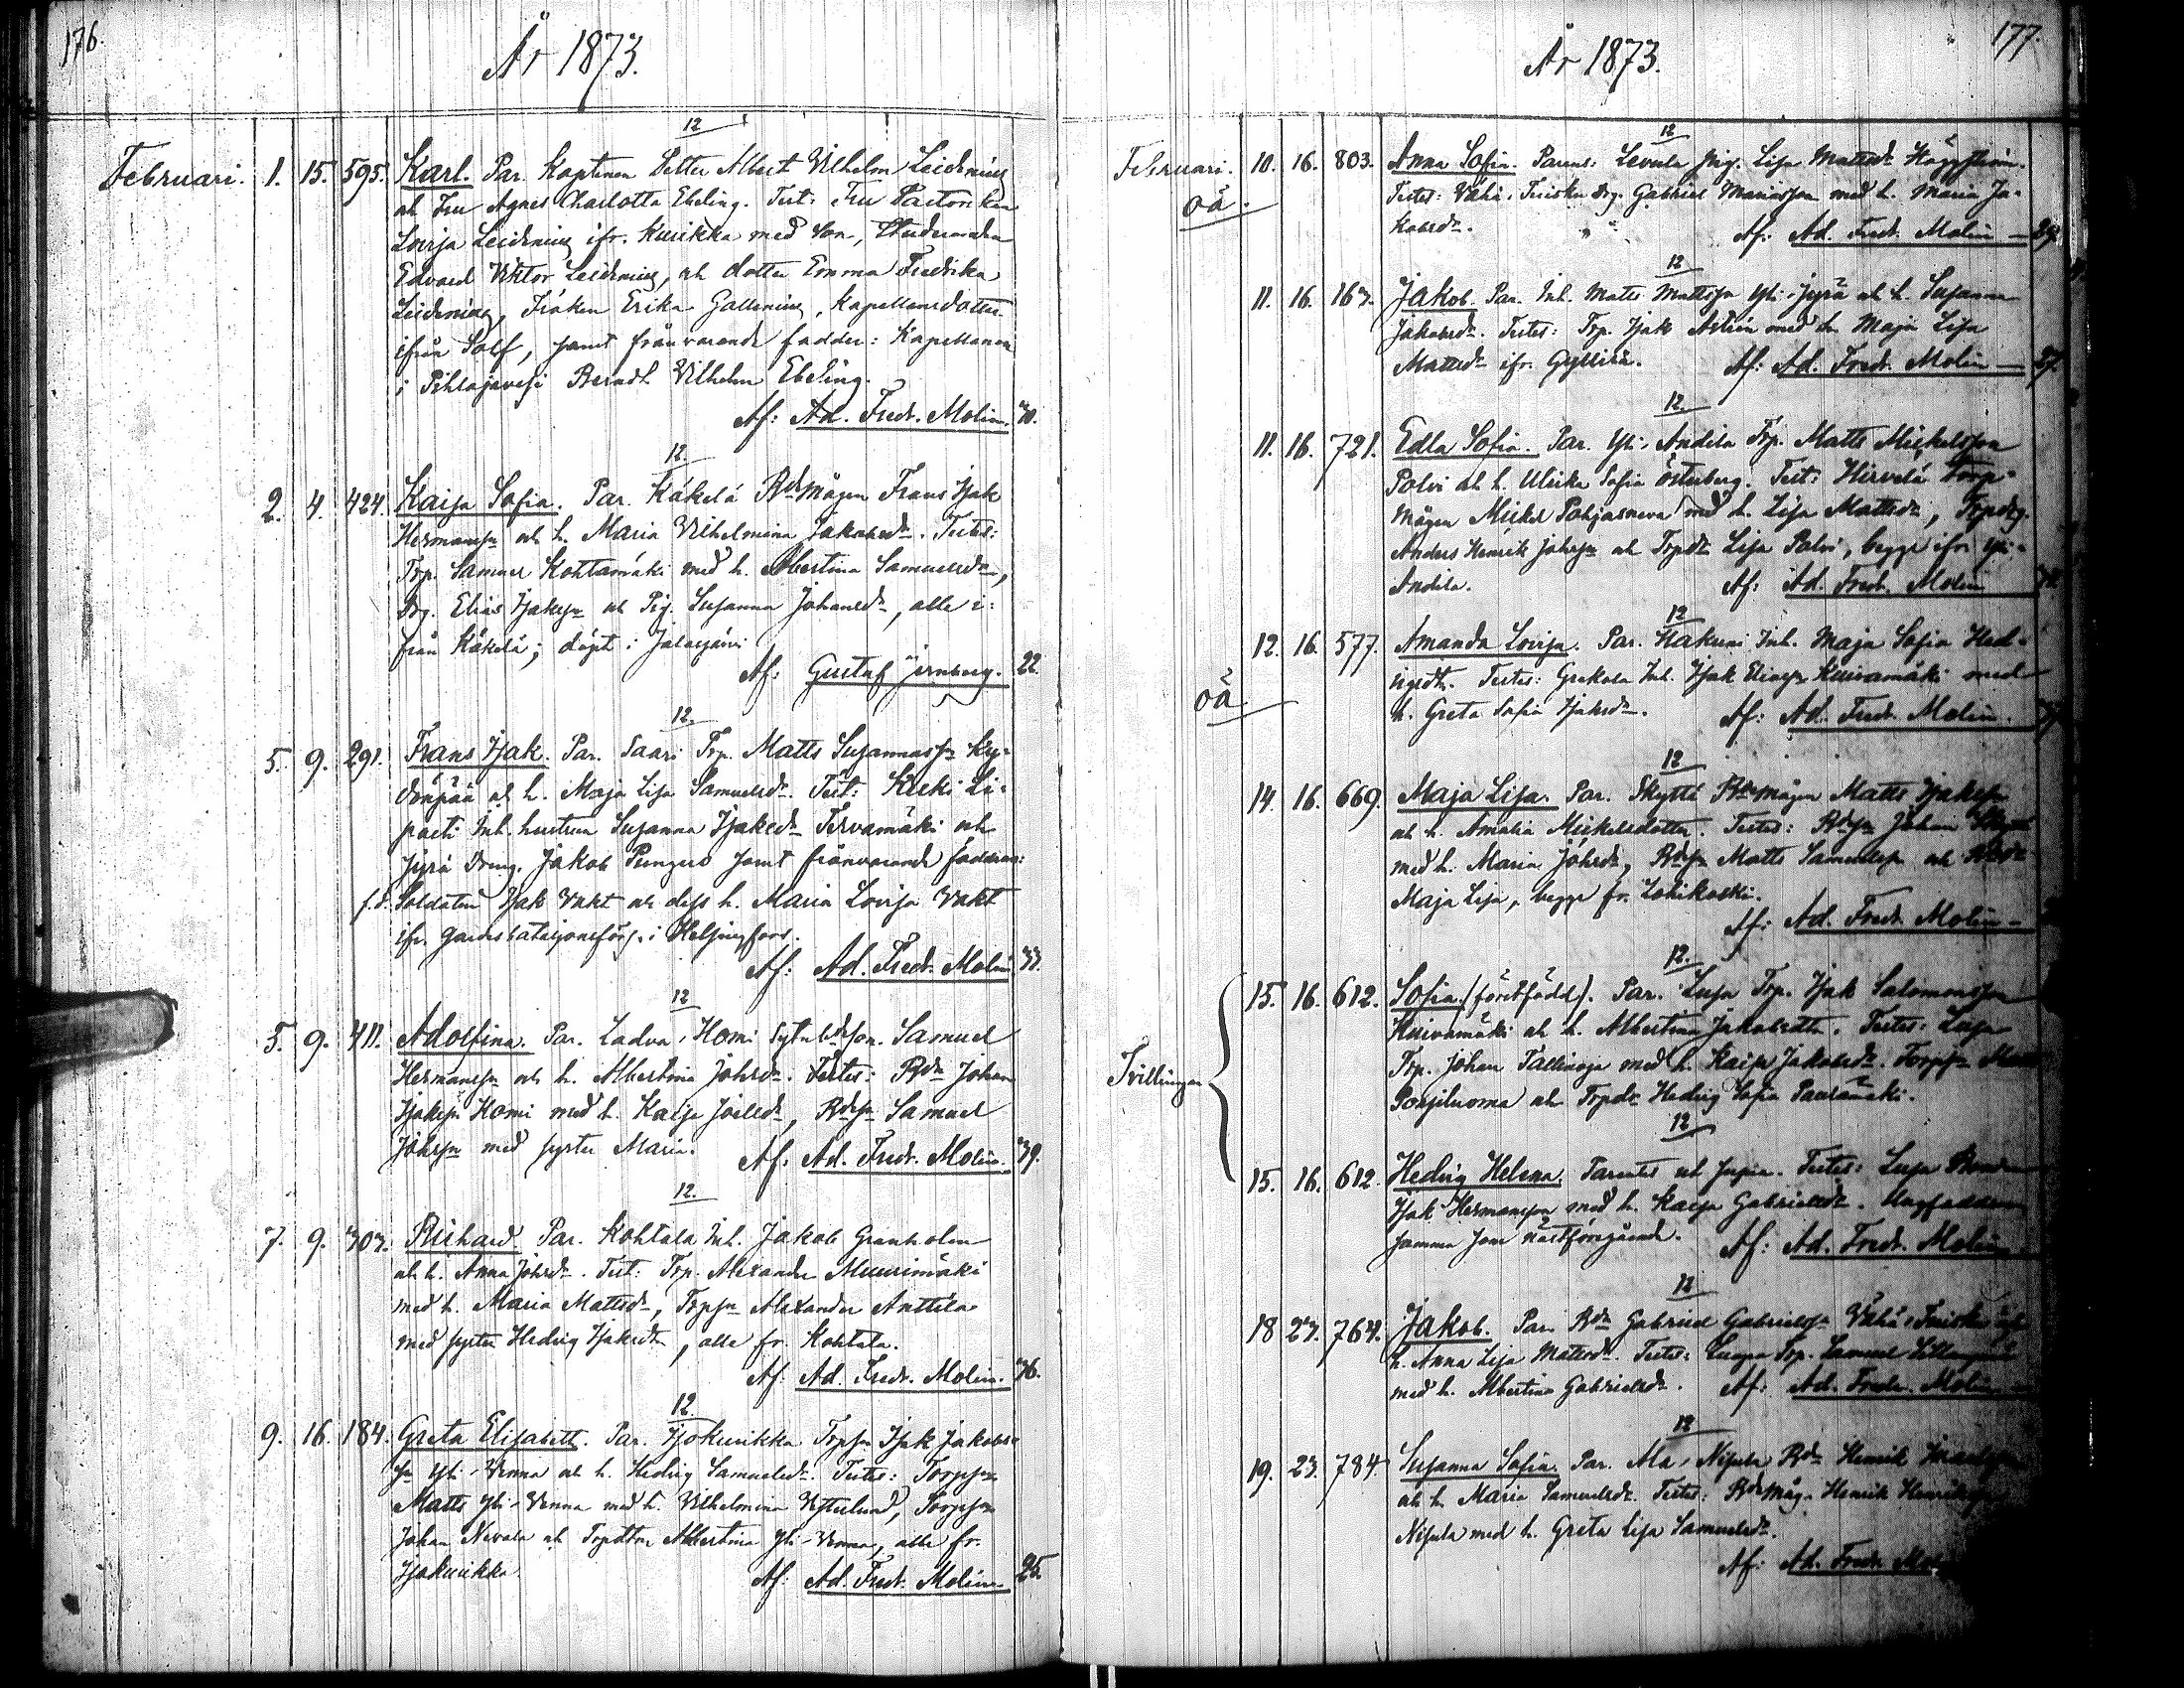 176.
År 1873.
12
Februari. 1. 15. 595. Karl. Par. Kaptenen Petter Albert Vilhelm Leidenius
och Fru Agnes Charlotta Ebeling. Test: Fru Pastorskan
Lovisa Leidenius ifr. Kurikka med son, Studeranden
Edvard Viktor Leidenius, och dotter Emma Fredrika
Leidenius, Fröken Erika Gallenius, Kapellansdotter
ifrån Solf, samt frånvarande fadder: Kapellanen
i Pihlajavesi Berndt Vilhelm Ebeling.
Af: Ad. Fredr. Molin. 30.
12.
2. 4. 424. Kaisa Sofia. Par. Käkelä Bdemågen Frans Isak
Hermanss. och h. Maria Vilhelmina Jakobsdr. Testes:
Trp. Samuel Kohtamäki med h. Albertina Samuelsdr,
Drg. Elias Isakss. och Pig. Susanna Johansdr, alle i-
från Käkelä; döpt i Jalasjärvi
Af: Gustaf Jernberg. 22.
12.
5. 9. 291. Frans Isak. Par. Saari Trp. Matts Susannass. Ky-
dönpää och h. Maja Lisa Samuelsdr. Test: Koski Li-
pasti Inh. hustrun Susanna Isaksdr Tervamäki och
Jyrä Dreng. Jakob Pungers samt frånvarande faddrar:
f.d. Soldaten Isak Vakt och dess h. Maria Lovisa Vakt
ifr. Gardesbataljonsförs. i Helsingfors.
Af: Ad. Fredr. Molin 33.
12
5. 9. 411. Adolfina. Par. Ladva, Homi Sytn. bdeson. Samuel
Hermanss. och h. Albertina Johsdr. Testes: Bdn Johan
Isakss. Homi med h. Kaisa Joelsdr, Bdess. Samuel
Johss. med syster Maria. Af: Ad. Fredr. Molin. 39.
12.
7. 9. 303. Richard. Par. Kohtala Inh. Jakob Granholm
och h. Anna Johsdr. Test: Trp. Alexander Muurimäki
med h. Maria Mattsdr, Trpss. Alexander Anttila
med syster Hedvig Isaksdr, alla fr. Kohtala.
Af. Ad. Fredr. Molin. 36.
12.
9. 16. 184. Greta Elisabeth. Par. Isokurikka Trpss. Isak Jakobs-
sn Yli-Venna och h. Hedvig Samuelsdr. Testes: Torpss.
Matts Yli-Venna med h. Vilhelmina Vesterlund, Torpss.
Johan Nevala och Trpdttr Albertina Yli-Venna, alla fr.
Isokurikka. Af. Ad. Fredr. Molin. 25.
177.
År 1873.
12
Februari. 10. 16. 803. Anna Sofia. Parens: Levula Pig. Lisa Mattsdr Häggström.
oä. Testes: Vähä-Tuisku Drg. Gabriel Mariasson med h. Maria Ja-
kobsdr. Af: Ad. Fredr. Molin 29.
12
11. 16. 163. Jakob. Par. Inh. Matts Mattss. Yli-Jyrä och h. Susanna
Jakobsdr. Testes: Trp. Isak Astrén med h. Maja Lisa
Mattsdr ifr. Gyllilä. Af: Ad. Fredr. Molin 27.
12.
11. 16. 721. Edla Sofia. Par. Yli-Andila Trp. Matts Mickelsson
Polvi och h. Ulrika Sofia Österberg. Test: Hirvelä Torp-
mågen Mickel Pohjasneva med h. Lisa Mattsdr, Trpdrg.
Anders Henrik Johss. och Trpdr Lisa Polvi, begge ifr. Yli-
Andila. Af: Ad. Fredr. Molin
12
12. 16. 577. Amanda Lovisa. Par. Hakuni Inh. Maja Sofia Hed-
vigsdtr. Testes: Grekola Inh. Isak Eliass. Kuivamäki med
oä h. Greta Sofia Isaksdr. Af: Ad. Fredr. Molin.
12
14. 16. 669. Maja Lisa. Par. Skyttä Bdemågen Matts Isakss.
och h. Amalia Mickelsdotter. Testes: Bdess. Johan
med h. Maria Johsdr, Bdess. Matts Samuelss. och
Maja Lisa, begge fr. Lohikoski.
Af: Ad. Fredr. Molin
12.
15. 16. 612. Sofia (förstfödd). Par. Luopa Trp. Isak Salomonsson
Kuivamäki och h. Albertina Jakobsdtr. Testes: Luopa
Tvillingar Trp. Johan Tallinoja med h. Kaisa Jakobsdr. Torpss.
Ponsiluoma och Trpdr Hedvig Sofia Panamäki.
12
15. 16. 612. Hedvig Helena. Parentes ut supra. Testes: Luopa Bonden
Isak Hermansson med h. Kaisa Gabrielsdr. Ungfaddrar
samma som näst föregående. Af: Ad. Fredr. Molin
12
18 23. 764. Jakob. Par. Bdn Gabriel Gabrielss. Vähä-Tuisku och
h. Anna Lisa Mattsdr. Testes: Luopa Trp. Samuel
med h. Albertina Gabrielsdr. Af: Ad. Fredr. Molin
12
19. 23. 784. Susanna Sofia. Par. Ala-Nisula Bdn Henrik
och h. Maria Samuelsdr. Testes: Bdemåg. Henrik Henrikss.
Nisula med h. Greta Lisa Samuelsdr.
Af: Ad. Fredr. Molin